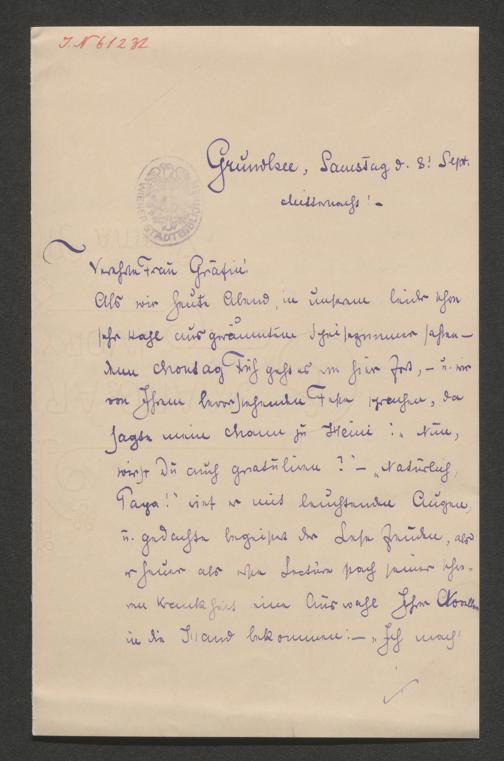 J.N 61232
Grundlsee, Samstag d. 8t Sept.
Mitternacht! –
WIENER STADTBIBLIOTHEK
Verehrte Frau Gräfin!
Als wir heute Abend, in unserem leider schon
sehr kahl ausgeräumten Speisezimmer saßen –
denn Montag Früh geht es von hier fort, – u. wir
von Ihrem bevorstehenden Feste sprachen, da
sagte mein Mann zu Heini: „Nun,
wirst Du auch gratuliren?" – „Natürlich,
Papa!" rief er mit leuchtenden Augen,
u. gedachte begeistert der Lese freuden, als
er heuer als erste Lectüre nach seiner schwe-
ren Krankheit eine Auswahl Ihrer Novellen
in die Hand bekommen: – „Ich mach'